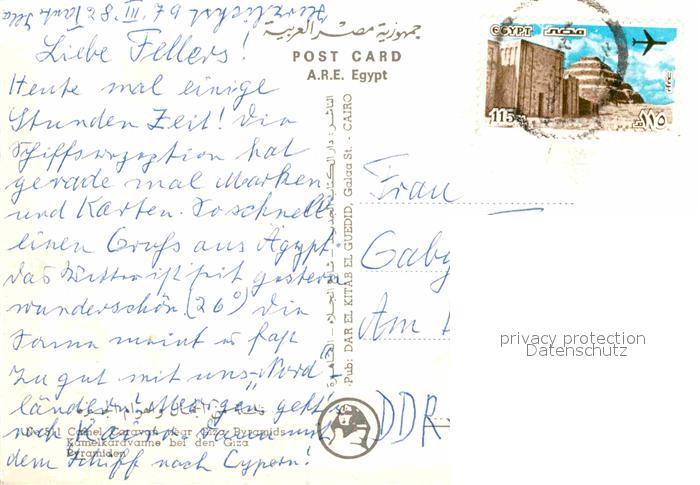 Liebe Fellers!
Heute mal einige
Stunden Zeit! Die
Schiffsrezeption hat
gerade mal Marken
und Karten. So schnell
einen Gruß aus Ägypt.
Das Wetter ist seit gestern
wunderschön (26°) Die
Sonne meint es fast
zu gut mit uns „Nord-
ländern“. Morgen geht's
nach Kairo, dann mit
dem Schiff nach Cypern!
Herzlichst
جمهورية مصر العربية
POST CARD
A.R.E. Egypt
EGYPT
مصر
115
١١٥
Pub: DAR EL KITAB EL GUEDID, Galaa St. - CAIRO
Frau
Gaby
Am
DDR
Camel Caravan near Giza Pyramids
Kamelkaravanne bei den Giza
Pyramiden
privacy protection
Datenschutz